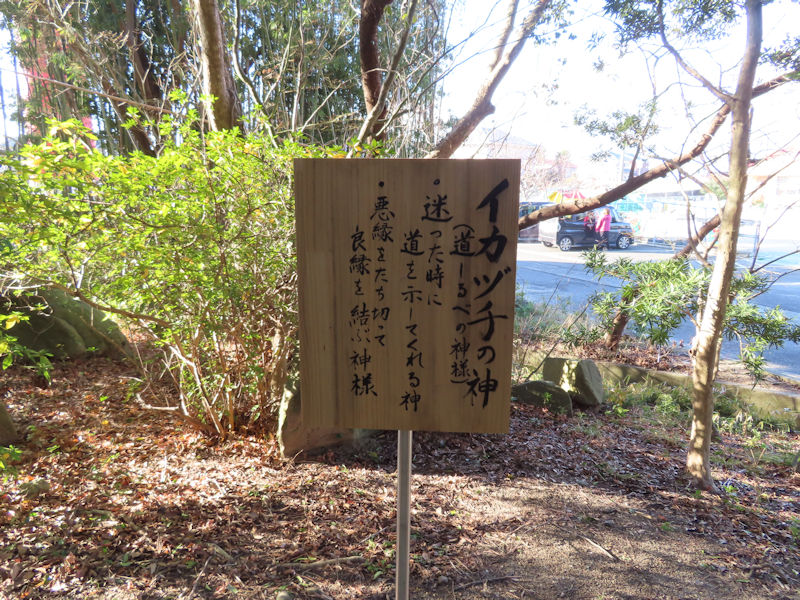 イカヅチの神
(道しるべの神様)
・迷った時に
道を示してくれる神
・悪縁をたち切って
良縁を結ぶ神様